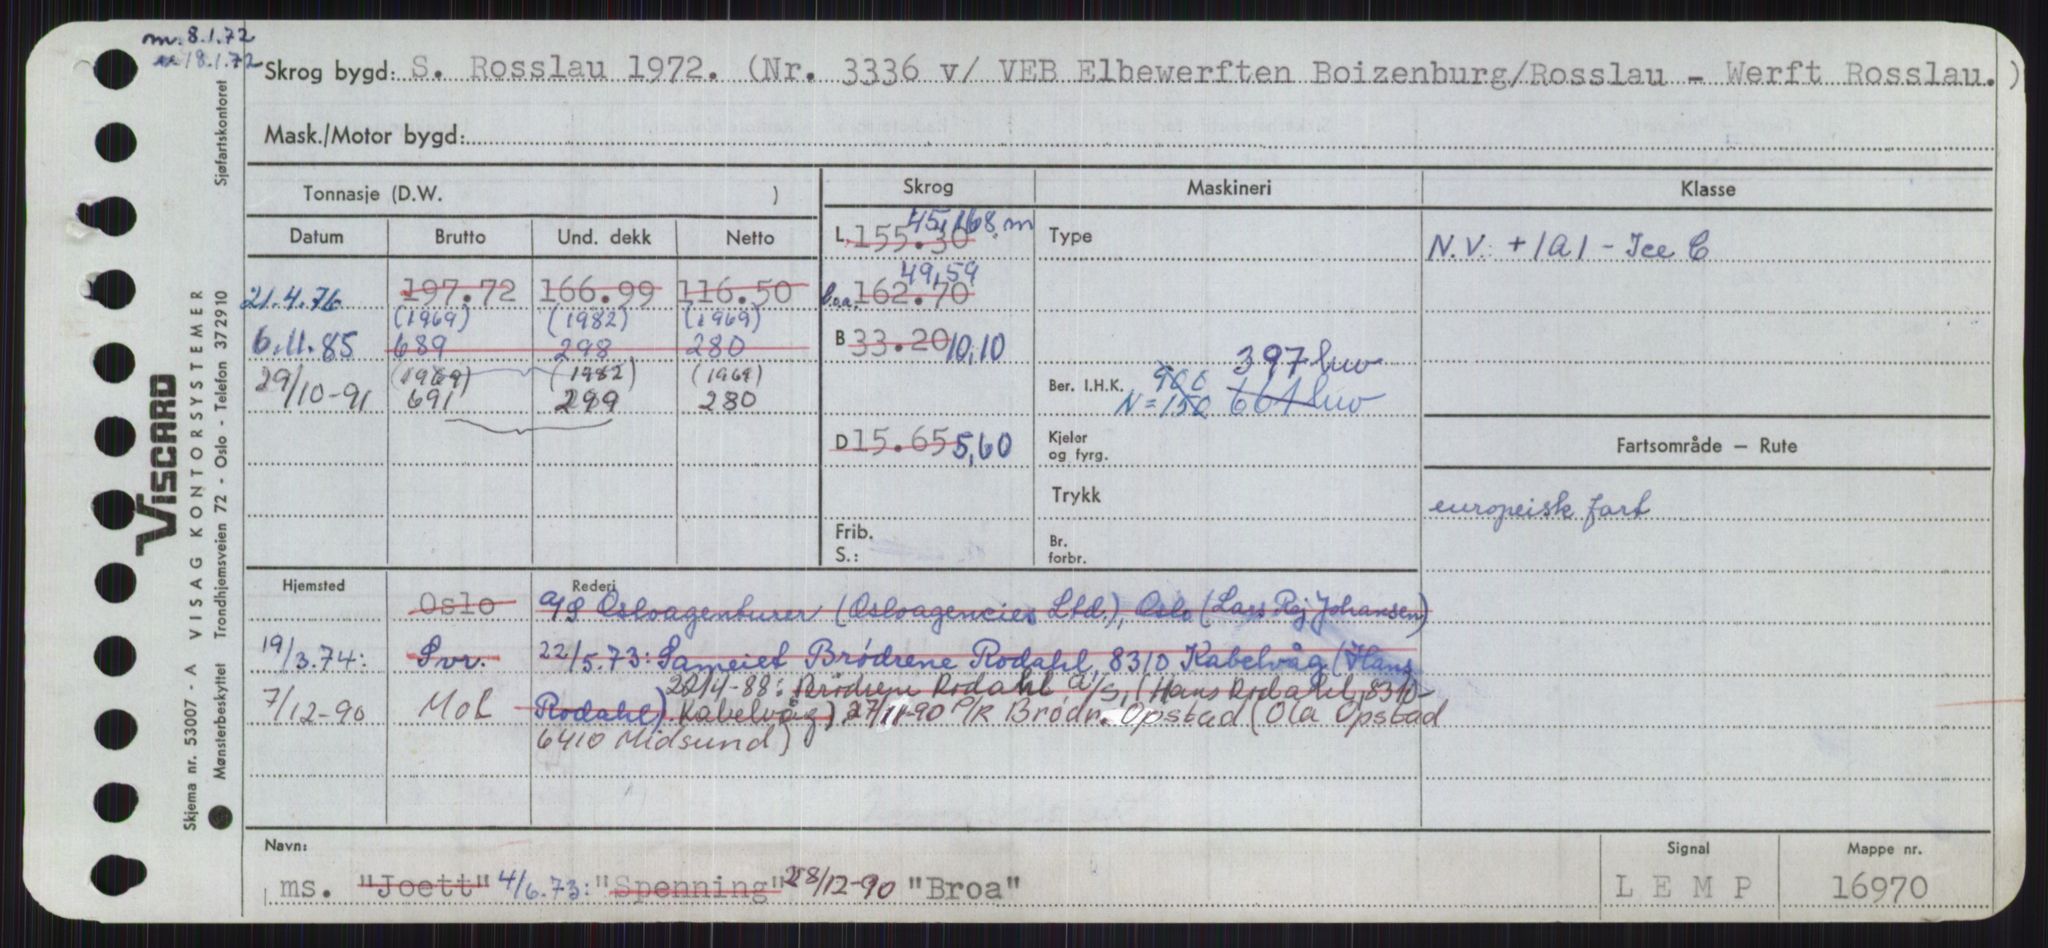 m. 8.1.72
18.1.72
Skrog bygd: S. Rosslau 1972. (Nr. 3336 v/ VEB Elbewerften Boizenburg/Rosslau - Werft Rosslau.)
Mask./Motor bygd:
Tonnasje (D.W. )
Skrog
Maskineri
Klasse
Datum
Brutto
Und. dekk
Netto
L 155.30 45,168 m
Type
N.V. + 1A1 - Ice C
21.4.76 197.72 166.99 116.50
l.o.a. 162.70 49,59
(1969) (1982) (1969)
6.11.85 689 298 280
B 33.20 10,10
397 hw
29/10-91 (1969) (1982) (1969)
691 299 280
Ber. I.H.K. 900 N=150 661 hw
D 15.65 5,60
Kjeler og fyrg.
Fartsområde — Rute
Trykk
europeisk fart
Frib. S.:
Br. forbr.
Hjemsted
Rederi
Oslo A/S Osloagenturer (Osloagencies Ltd.), Oslo (Lars Rej Johansen)
19/3.74: Svr. 22/5.73: Sameiet Brødrene Rodahl, 8310 Kabelvåg (Hans
22/4-88: Brødrene Rodahl A/S, (Hans Rodahl, 8310
7/12-90 Mol Rodahl) Kabelvåg) 27/11-90 P/R Brødr. Opstad (Ola Opstad
6410 Midsund)
Navn:
Signal
Mappe nr.
ms. "Joett" 4/6.73: "Spenning" 28/12-90 "Broa"
LEMP
16970
Skjema nr. 53007 - A VISAG KONTORSYSTEMER
VISCARD
Mønsterbeskyttet Trondhjemsveien 72 - Oslo - Telefon 372910 Sjøfartskontoret